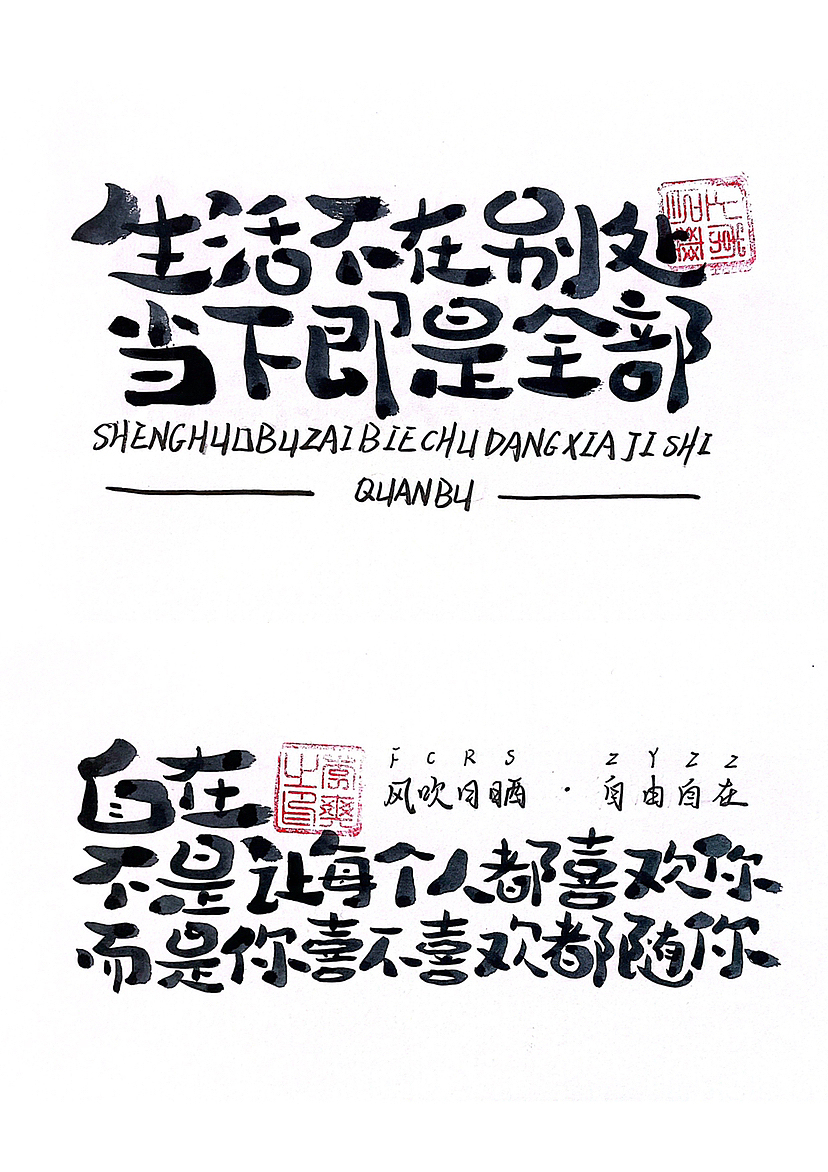 生活不在别处
当下即是全部
SHENGHUOBUZAIBIECHUDANGXIAJISHI
QUANBU
自在
F C R S Z Y Z Z
风吹日晒·自由自在
不是让每个人都喜欢你
而是你喜不喜欢都随你